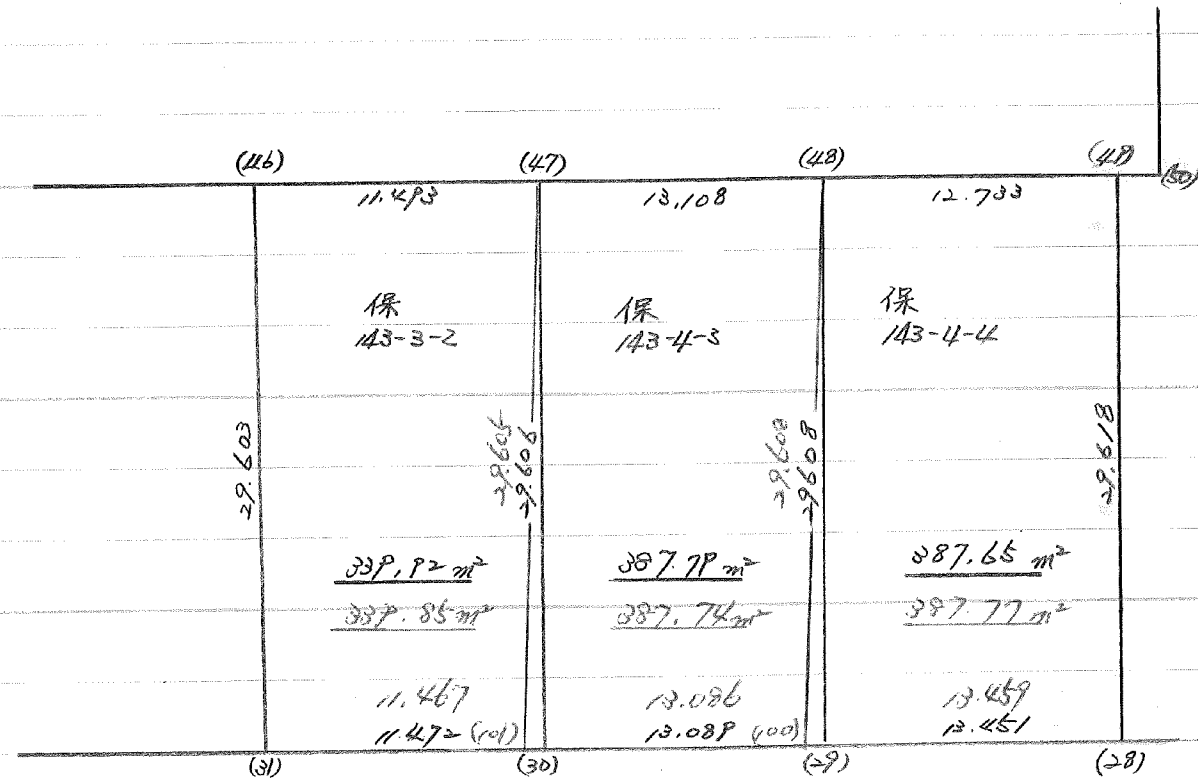 (46)
(47)
(48)
(49)
(50)
11.493
13.108
12.733
保
143-3-2
保
143-4-3
保
143-4-4
29.603
29.605
29.606
29.608
29608
29.618
339.92 m²
387.79 m²
387.65 m²
339.85 m²
387.74 m²
387.77 m²
11.467
13.086
13.459
11.472 (101)
13.089 (100)
13.451
(31)
(30)
(29)
(28)